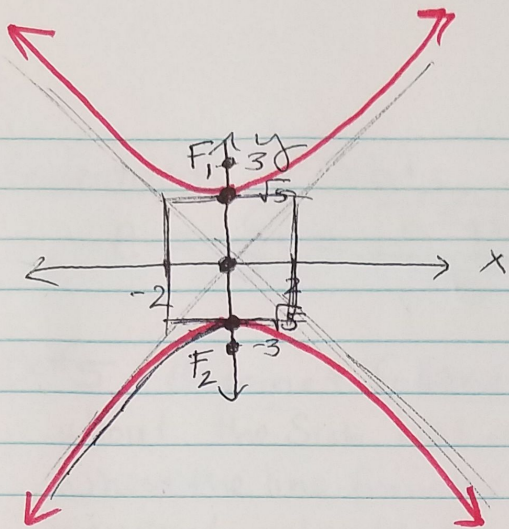 F₁ 3 y
√5
x
-2 2
√5
-3
F₂